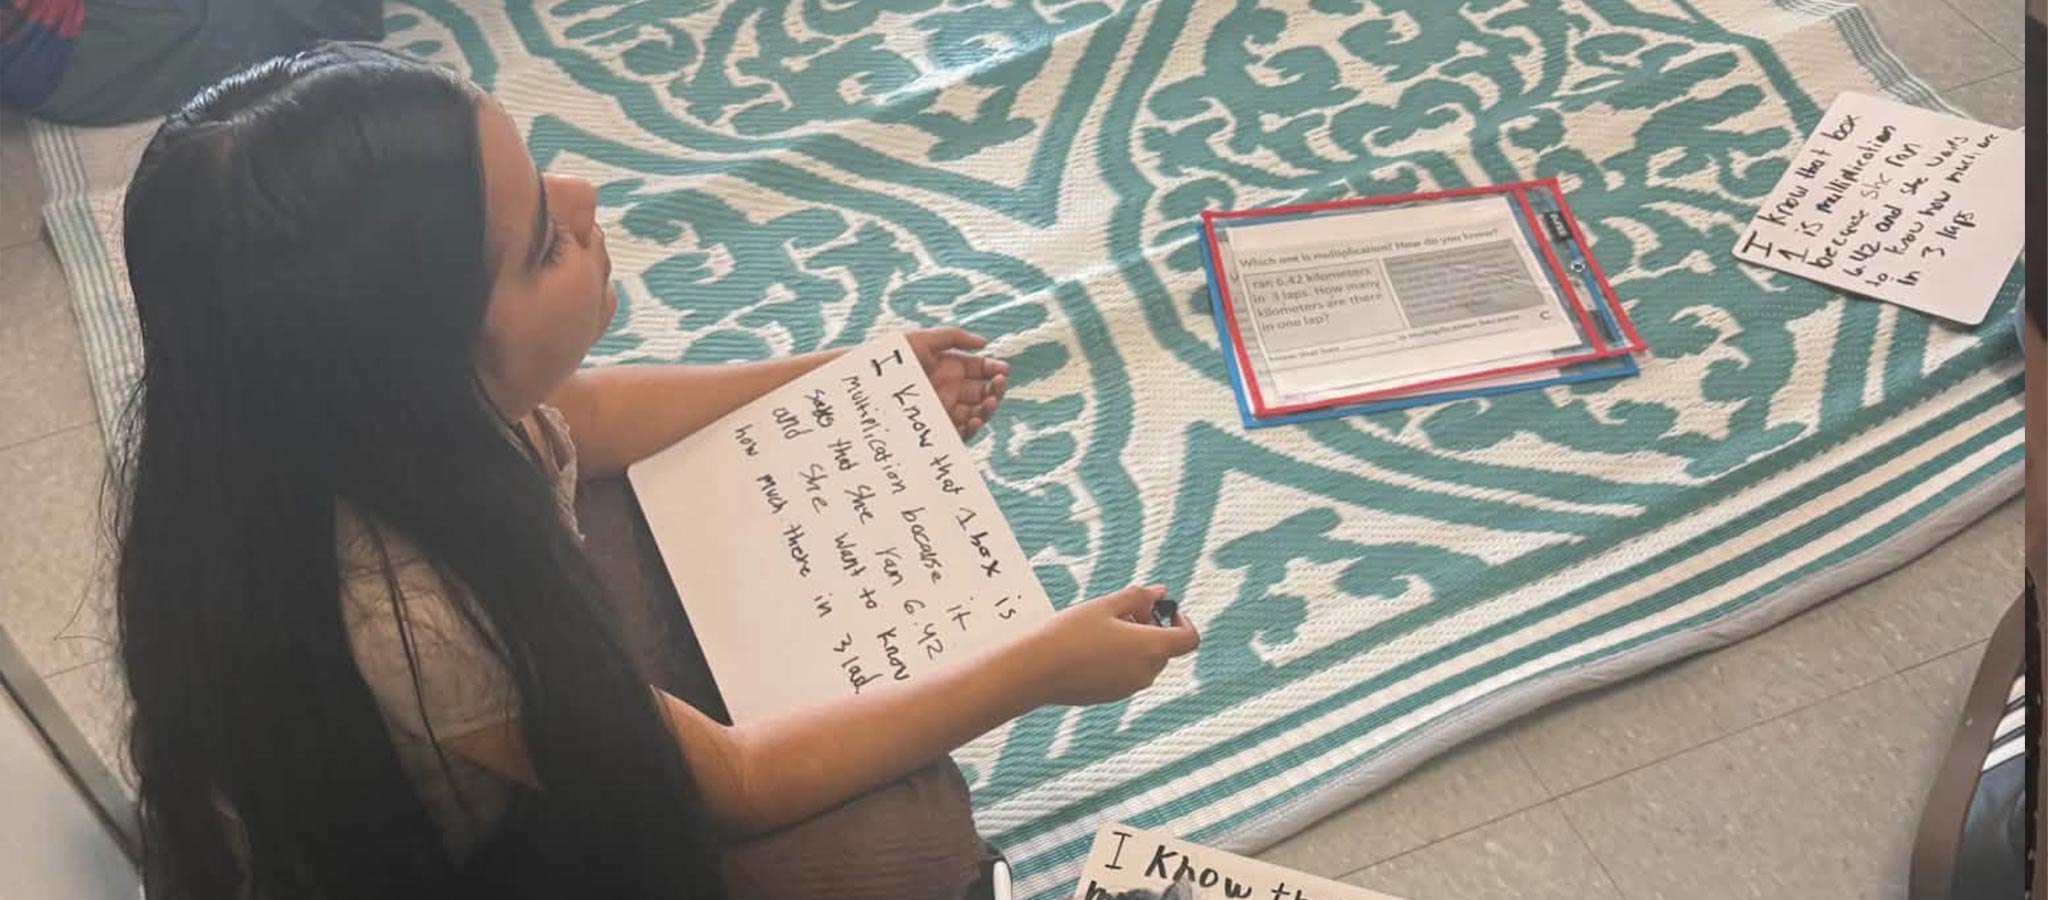 I know that 1 box is
multiplication bocause it
says that she ran 6.42
and she want to know
how much there in 3 lad
Which one is multiplication? How do you know?
ran 6.42 kilometers
in 3 laps. How many
kilometers are there
in one lap?
know that box
is multiplication because
C
I know that box
1 is multiplication
because she ran
6.42 and she wants
to know how much are
in 3 laps
I know